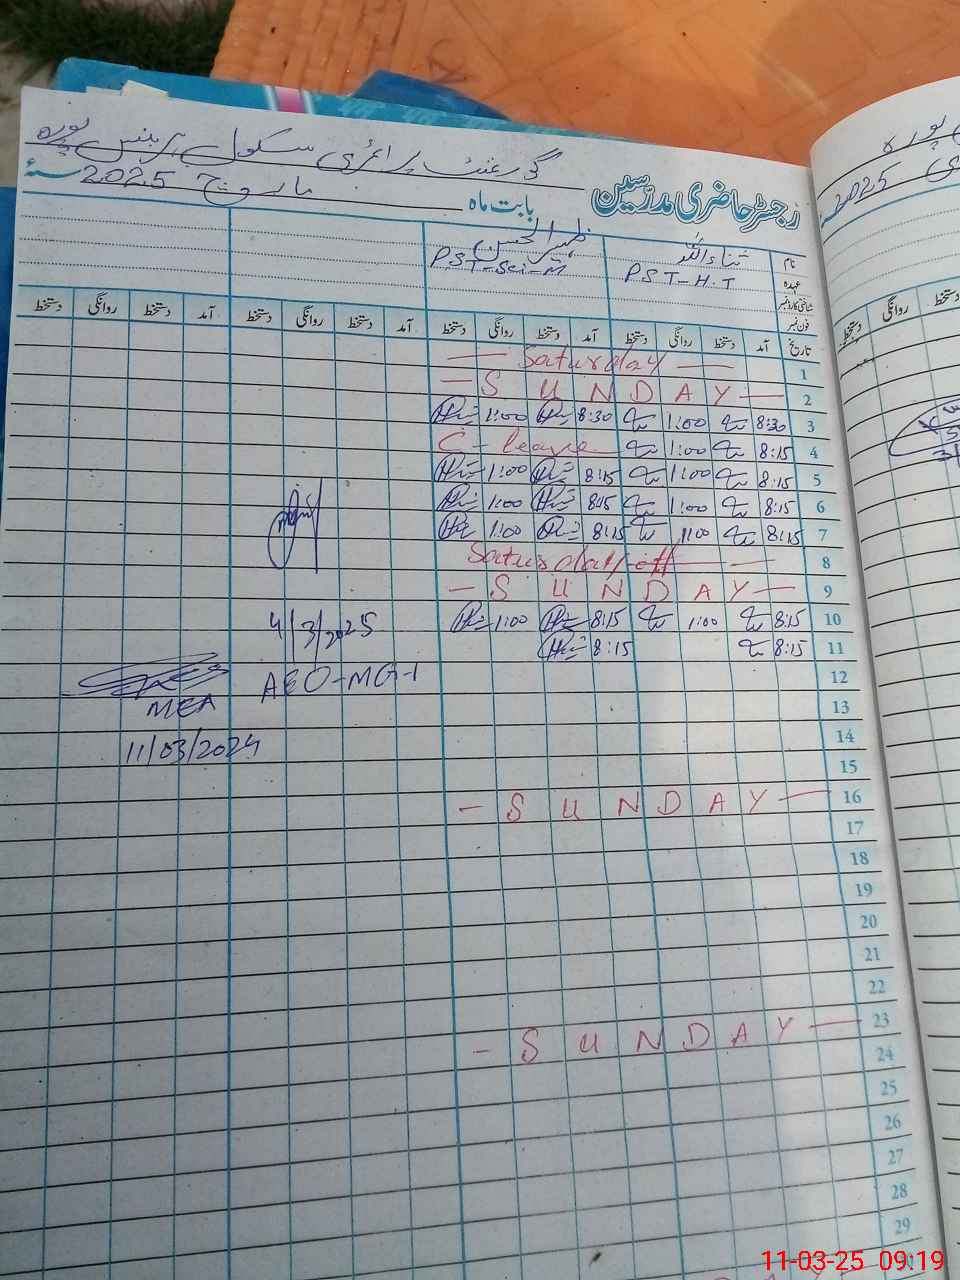 گورنمنٹ پرائمری سکول ہر پنس پورہ
رجسٹر حاضری مدرسین بابت ماہ مارچ 2025 سنۂ
نام ثناءاللہ ظہیر الحسن
عہدہ PST-H.T PST-Sci-M
شناختی کارڈ نمبر
فون نمبر
تاریخ آمد دستخط روانگی دستخط آمد دستخط روانگی دستخط آمد دستخط روانگی دستخط آمد دستخط روانگی دستخط
1 — Saturday —
2 — SUNDAY —
3 8:30 1:00 8:30 1:00
4 8:15 1:00 C-leave
5 8:15 1:00 8:15 1:00
6 8:15 1:00 8:15 1:00
7 8:15 1:00 8:15 1:00
8 Saturday off —
9 — SUNDAY —
10 8:15 1:00 8:15 1:00
4/3/2025
11 8:15 8:15
12
AEO-MG-1
MEA
13
14
11/03/2024
15
16 — SUNDAY —
17
18
19
20
21
22
23 — SUNDAY —
24
25
26
27
28
29
2025
روانگی
دستخط
11-03-25 09:19